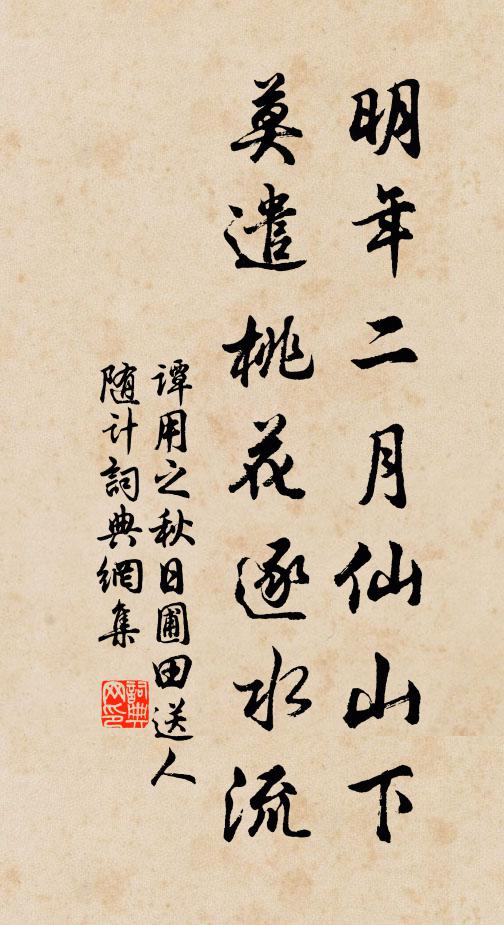 明年二月仙山下
莫遣桃花逐水流
谭用之秋日圃田送人
随计詞典網集
詞典网印